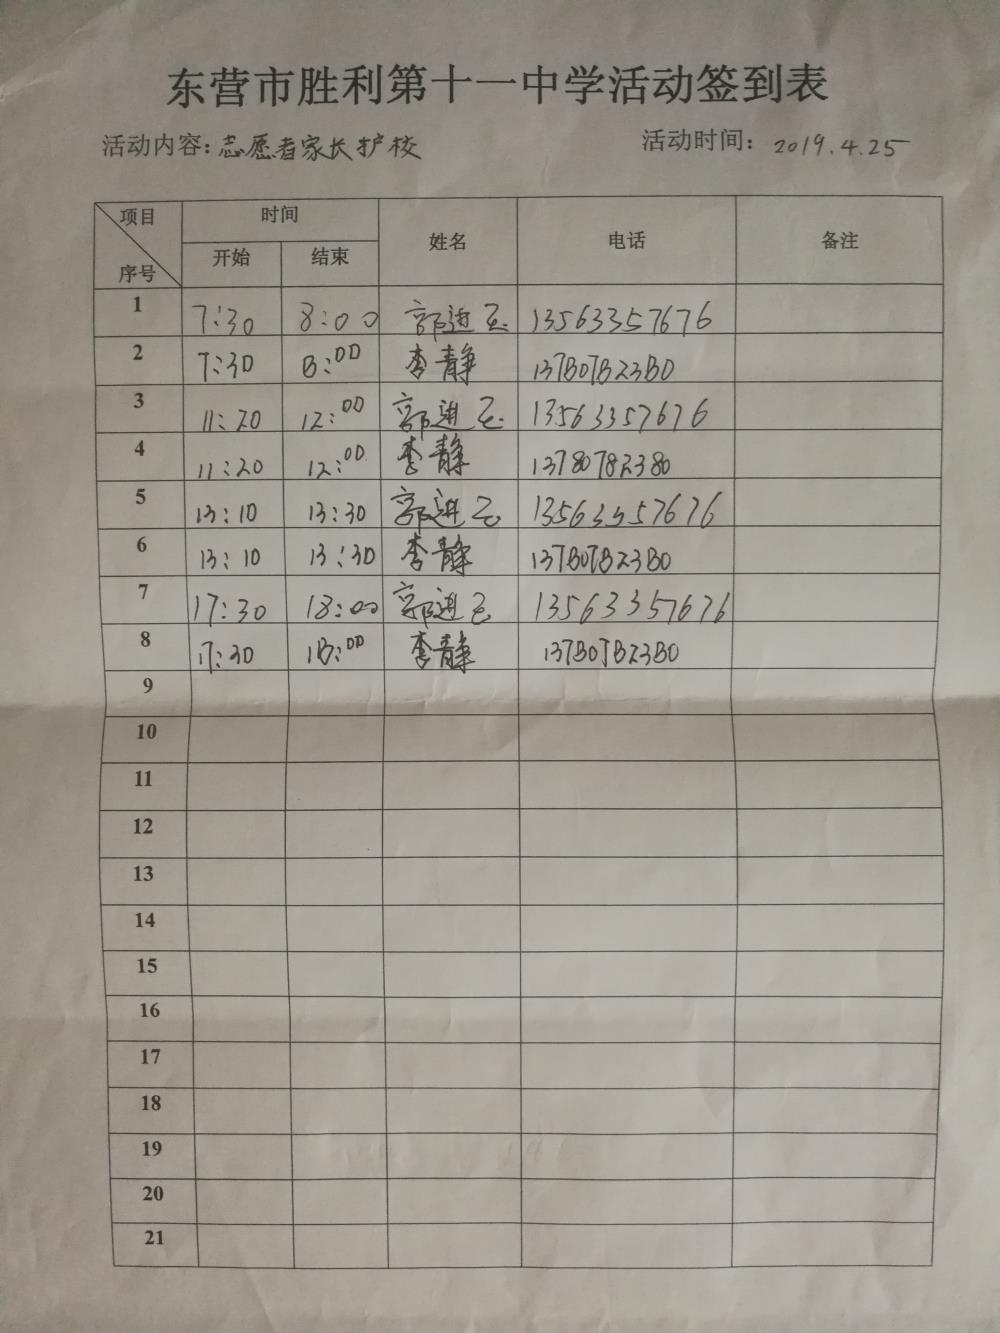 东营市胜利第十一中学活动签到表
活动内容：志愿者家长护校 活动时间：2019.4.25
项目 序号 时间 姓名 电话 备注
开始 结束
1 7:30 8:00 郭进玉 13563357676
2 7:30 8:00 李静 13780782380
3 11:20 12:00 郭进玉 13563357676
4 11:20 12:00 李静 13780782380
5 13:10 13:30 郭进玉 13563357676
6 13:10 13:30 李静 13780782380
7 17:30 18:00 郭进玉 13563357676
8 17:30 18:00 李静 13780782380
9
10
11
12
13
14
15
16
17
18
19
20
21